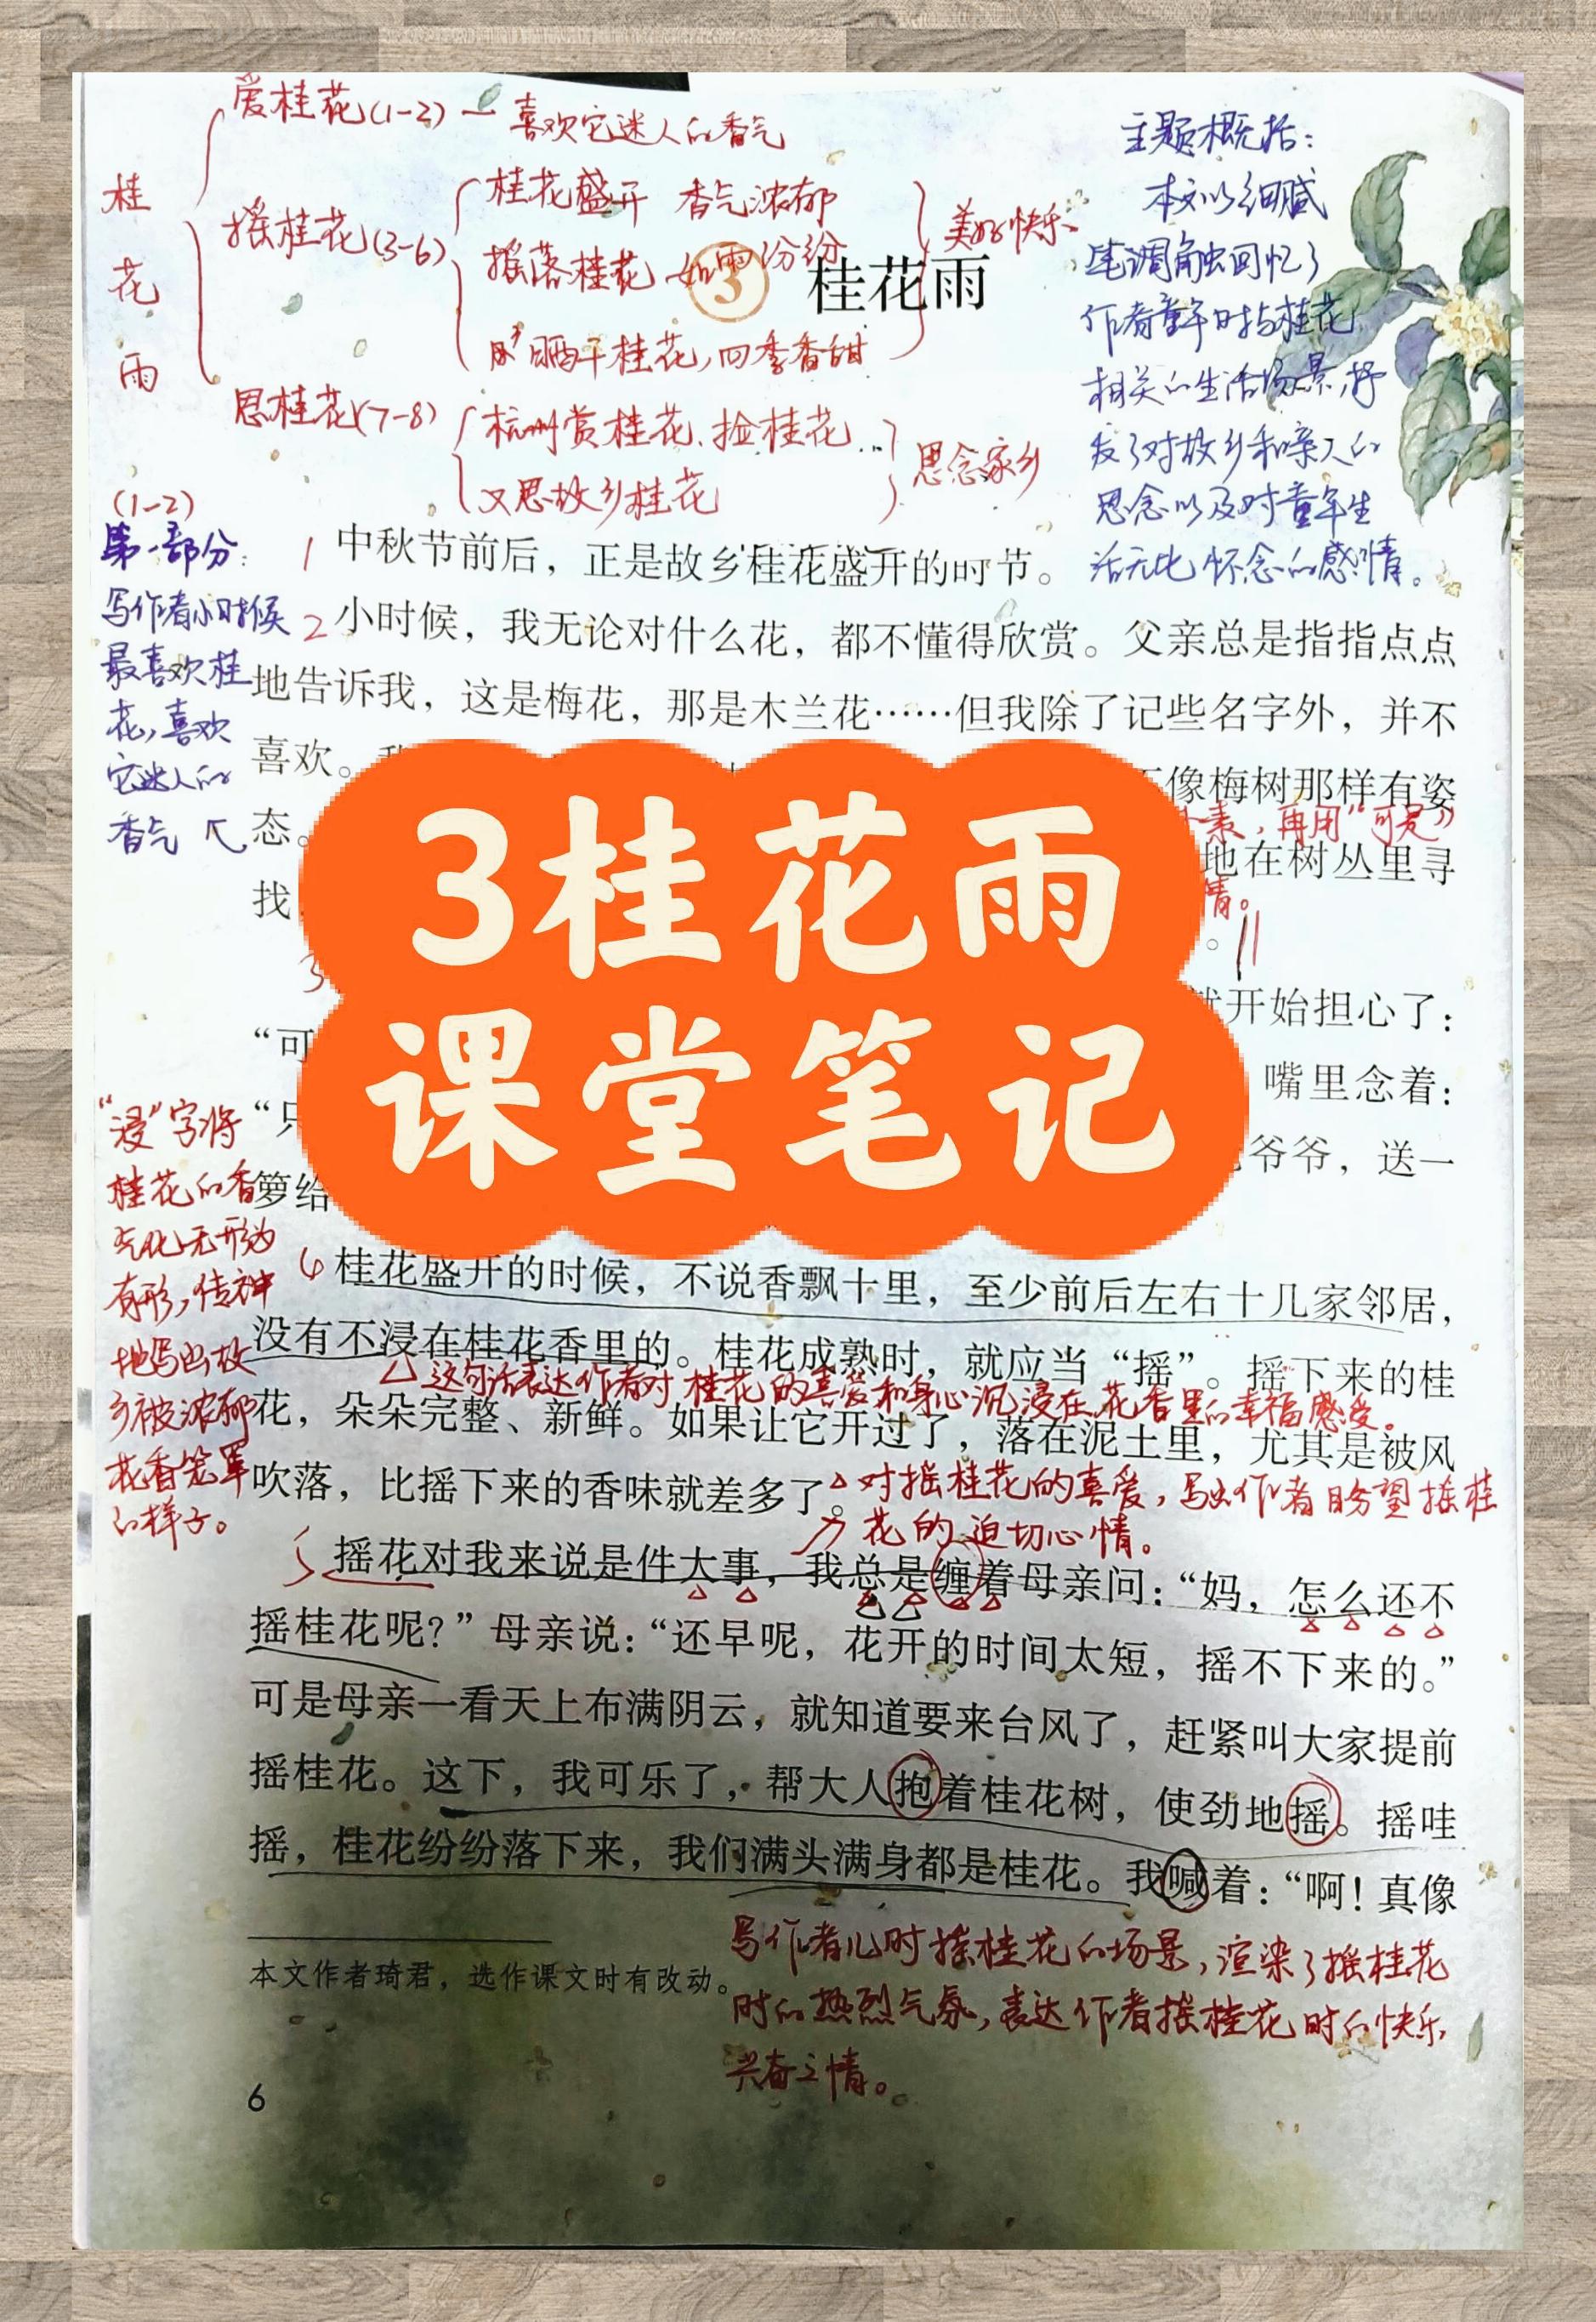 爱桂花(1-2) — 喜欢它迷人的香气
桂花雨
摇桂花(3-6)
桂花盛开 香气浓郁
摇落桂花 如雨纷纷
晒干桂花,四季香甜
美好快乐
思桂花(7-8)
杭州赏桂花、捡桂花…
又思故乡桂花
思念家乡
主题概括:
本文以细腻
笔调
回忆了
作者童年时与桂花
相关的生活场景,抒
发了对故乡和亲人的
思念以及对童年生
活无比怀念的感情。
3 桂花雨
(1-2)
第一部分:
写作者小时候
最喜欢桂
花,喜欢
它迷人的
香气
1 中秋节前后,正是故乡桂花盛开的时节。
2 小时候,我无论对什么花,都不懂得欣赏。父亲总是指指点点
地告诉我,这是梅花,那是木兰花……但我除了记些名字外,并不
喜欢。
像梅树那样有姿
态。
再用“可是”
地在树丛里寻
找
情。
3桂花雨
课堂笔记
3
开始担心了:
“可
嘴里念着:
“只
爷爷,送一
箩给
“浸”字将
桂花的香
气化无形为
有形,传神
地写出故
乡被浓郁
花香笼罩
的样子。
4 桂花盛开的时候,不说香飘十里,至少前后左右十几家邻居,
没有不浸在桂花香里的。桂花成熟时,就应当“摇”。摇下来的桂
这句话表达作者对桂花的喜爱和身心沉浸在花香里的幸福感受。
花,朵朵完整、新鲜。如果让它开过了,落在泥土里,尤其是被风
吹落,比摇下来的香味就差多了。
对摇桂花的喜爱,写出作者盼望摇桂
花的迫切心情。
5 摇花对我来说是件大事,我总是缠着母亲问:“妈,怎么还不
摇桂花呢?”母亲说:“还早呢,花开的时间太短,摇不下来的。”
可是母亲一看天上布满阴云,就知道要来台风了,赶紧叫大家提前
摇桂花。这下,我可乐了,帮大人抱着桂花树,使劲地摇。摇哇
摇,桂花纷纷落下来,我们满头满身都是桂花。我喊着:“啊!真像
写作者儿时摇桂花的场景,渲染了摇桂花
时的热烈气氛,表达作者摇桂花时的快乐
兴奋之情。
本文作者琦君,选作课文时有改动。
6